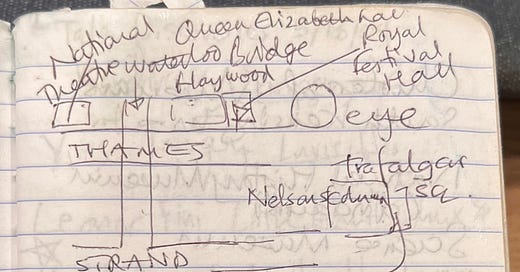 National
Theatre
Waterloo Bridge
Queen Elizabeth Hall
Haywood
Royal
Festival
Hall
eye
THAMES
Trafalgar
SQ.
Nelsons Column
STRAND